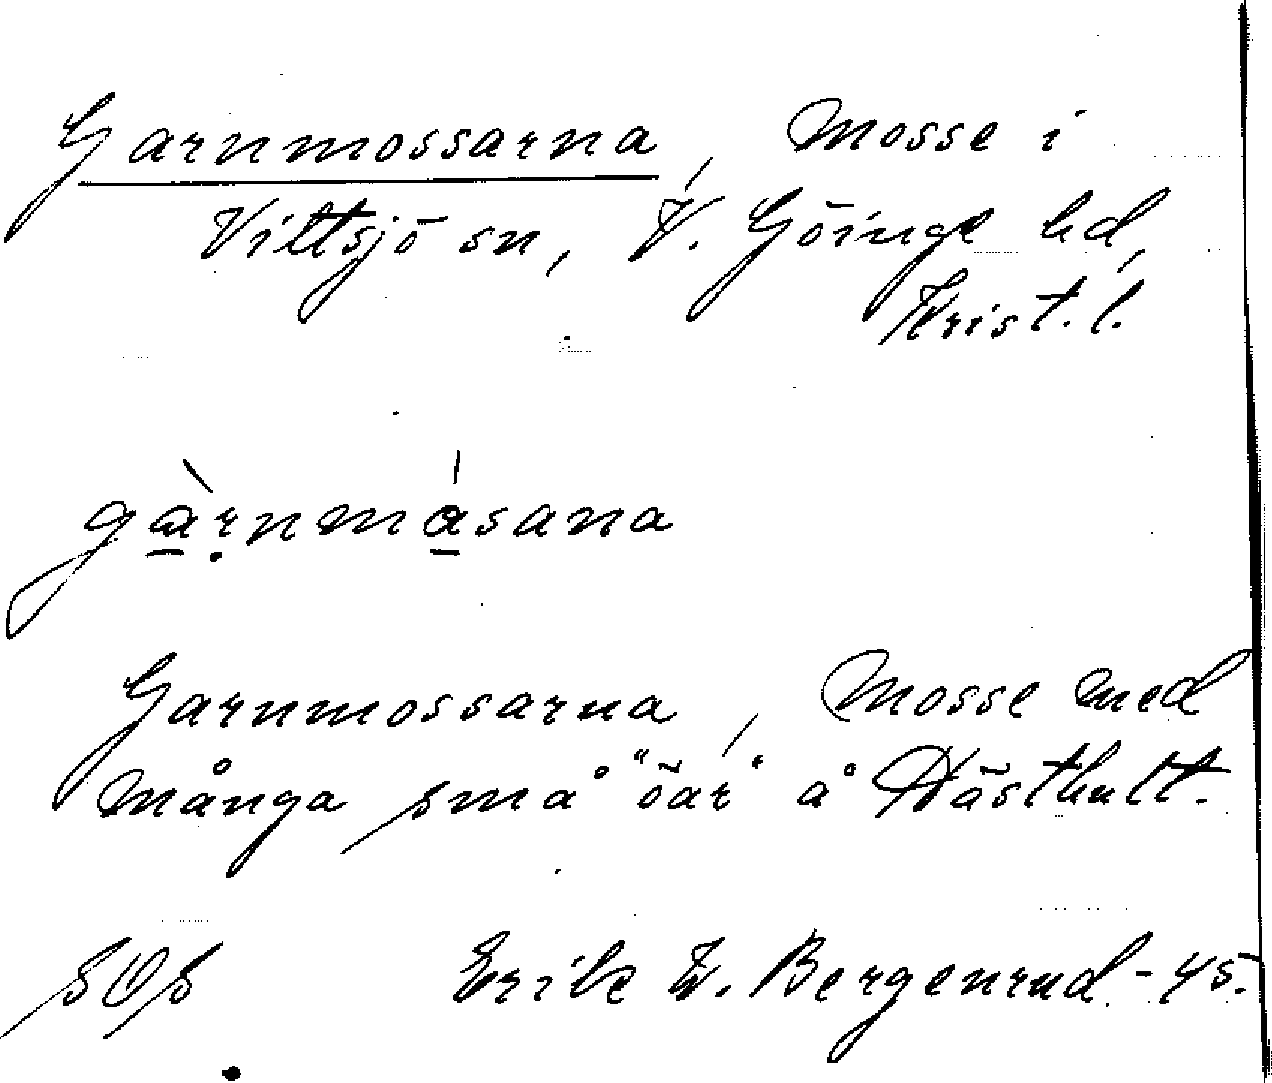 Garnmossarna, Mosse i
Vittsjö sn, V. Göinge hd,
Krist. l.
gàrnmásana
Garnmossarna, Mosse med
många små "öar" å Hästhult.
SOS Erik W. Bergenrud -45.